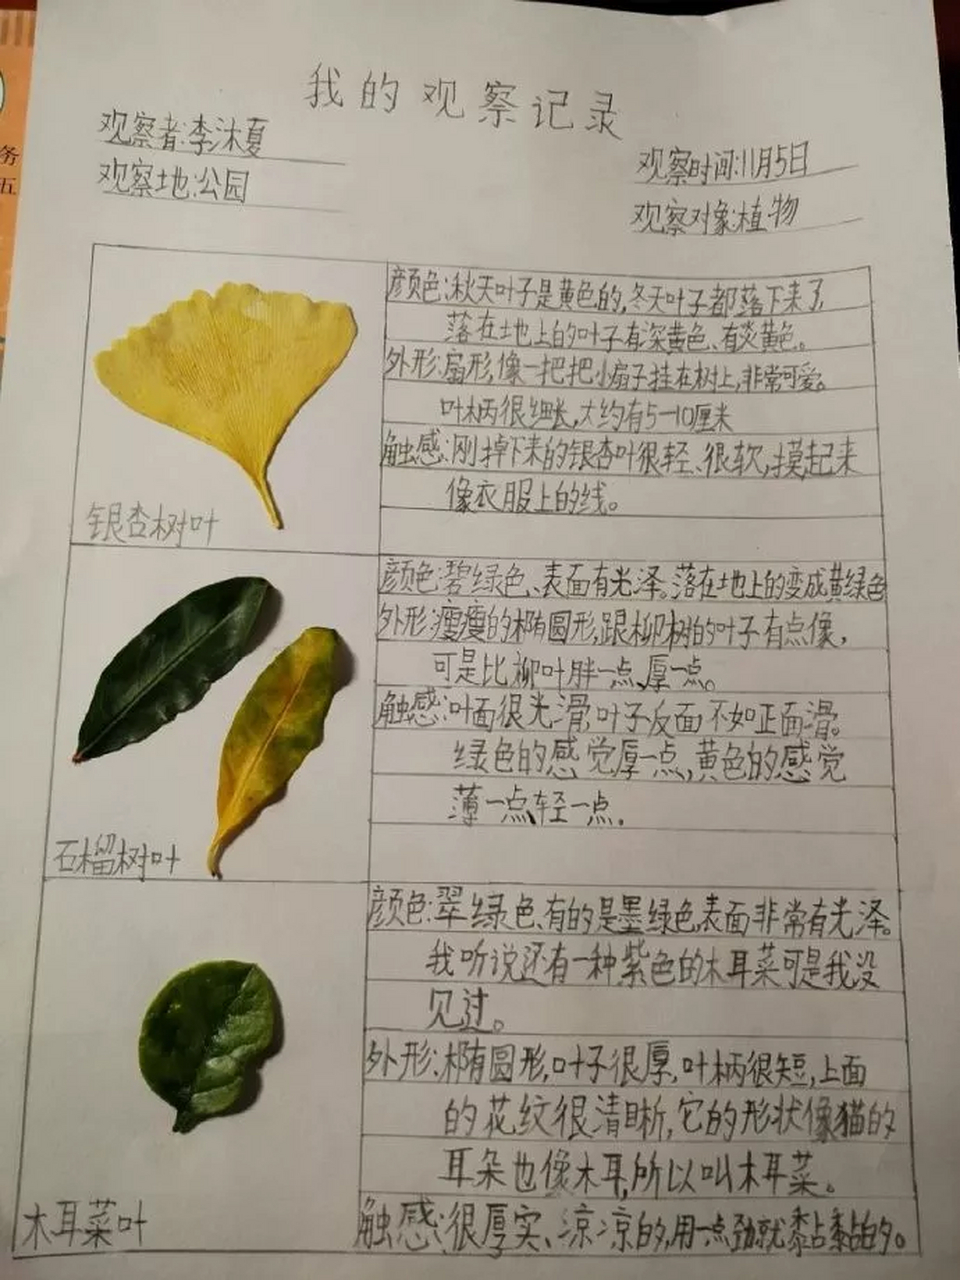 务
五
我的观察记录
观察者:李沐夏
观察地:公园
观察时间:11月5日
观察对象:植物
颜色:秋天叶子是黄色的,冬天叶子都落下来了,
落在地上的叶子有深黄色、有淡黄色。
外形:扇形,像一把把小扇子挂在树上,非常可爱。
叶柄很细长,大约有5-10厘米
触感:刚掉下来的银杏叶很轻、很软,摸起来
像衣服上的线。
银杏树叶
颜色:碧绿色、表面有光泽。落在地上的变成黄绿色
外形:瘦瘦的椭圆形,跟柳树的叶子有点像,
可是比柳叶胖一点、厚一点。
触感:叶面很光滑,叶子反面不如正面滑。
绿色的感觉厚一点,黄色的感觉
薄一点、轻一点。
石榴树叶
颜色:翠绿色,有的是墨绿色,表面非常有光泽。
我听说还有一种紫色的木耳菜可是我没
见过。
外形:椭圆形,叶子很厚,叶柄很短,上面
的花纹很清晰,它的形状像猫的
耳朵也像木耳,所以叫木耳菜。
触感:很厚实、凉凉的,用一点劲就黏黏的。
木耳菜叶